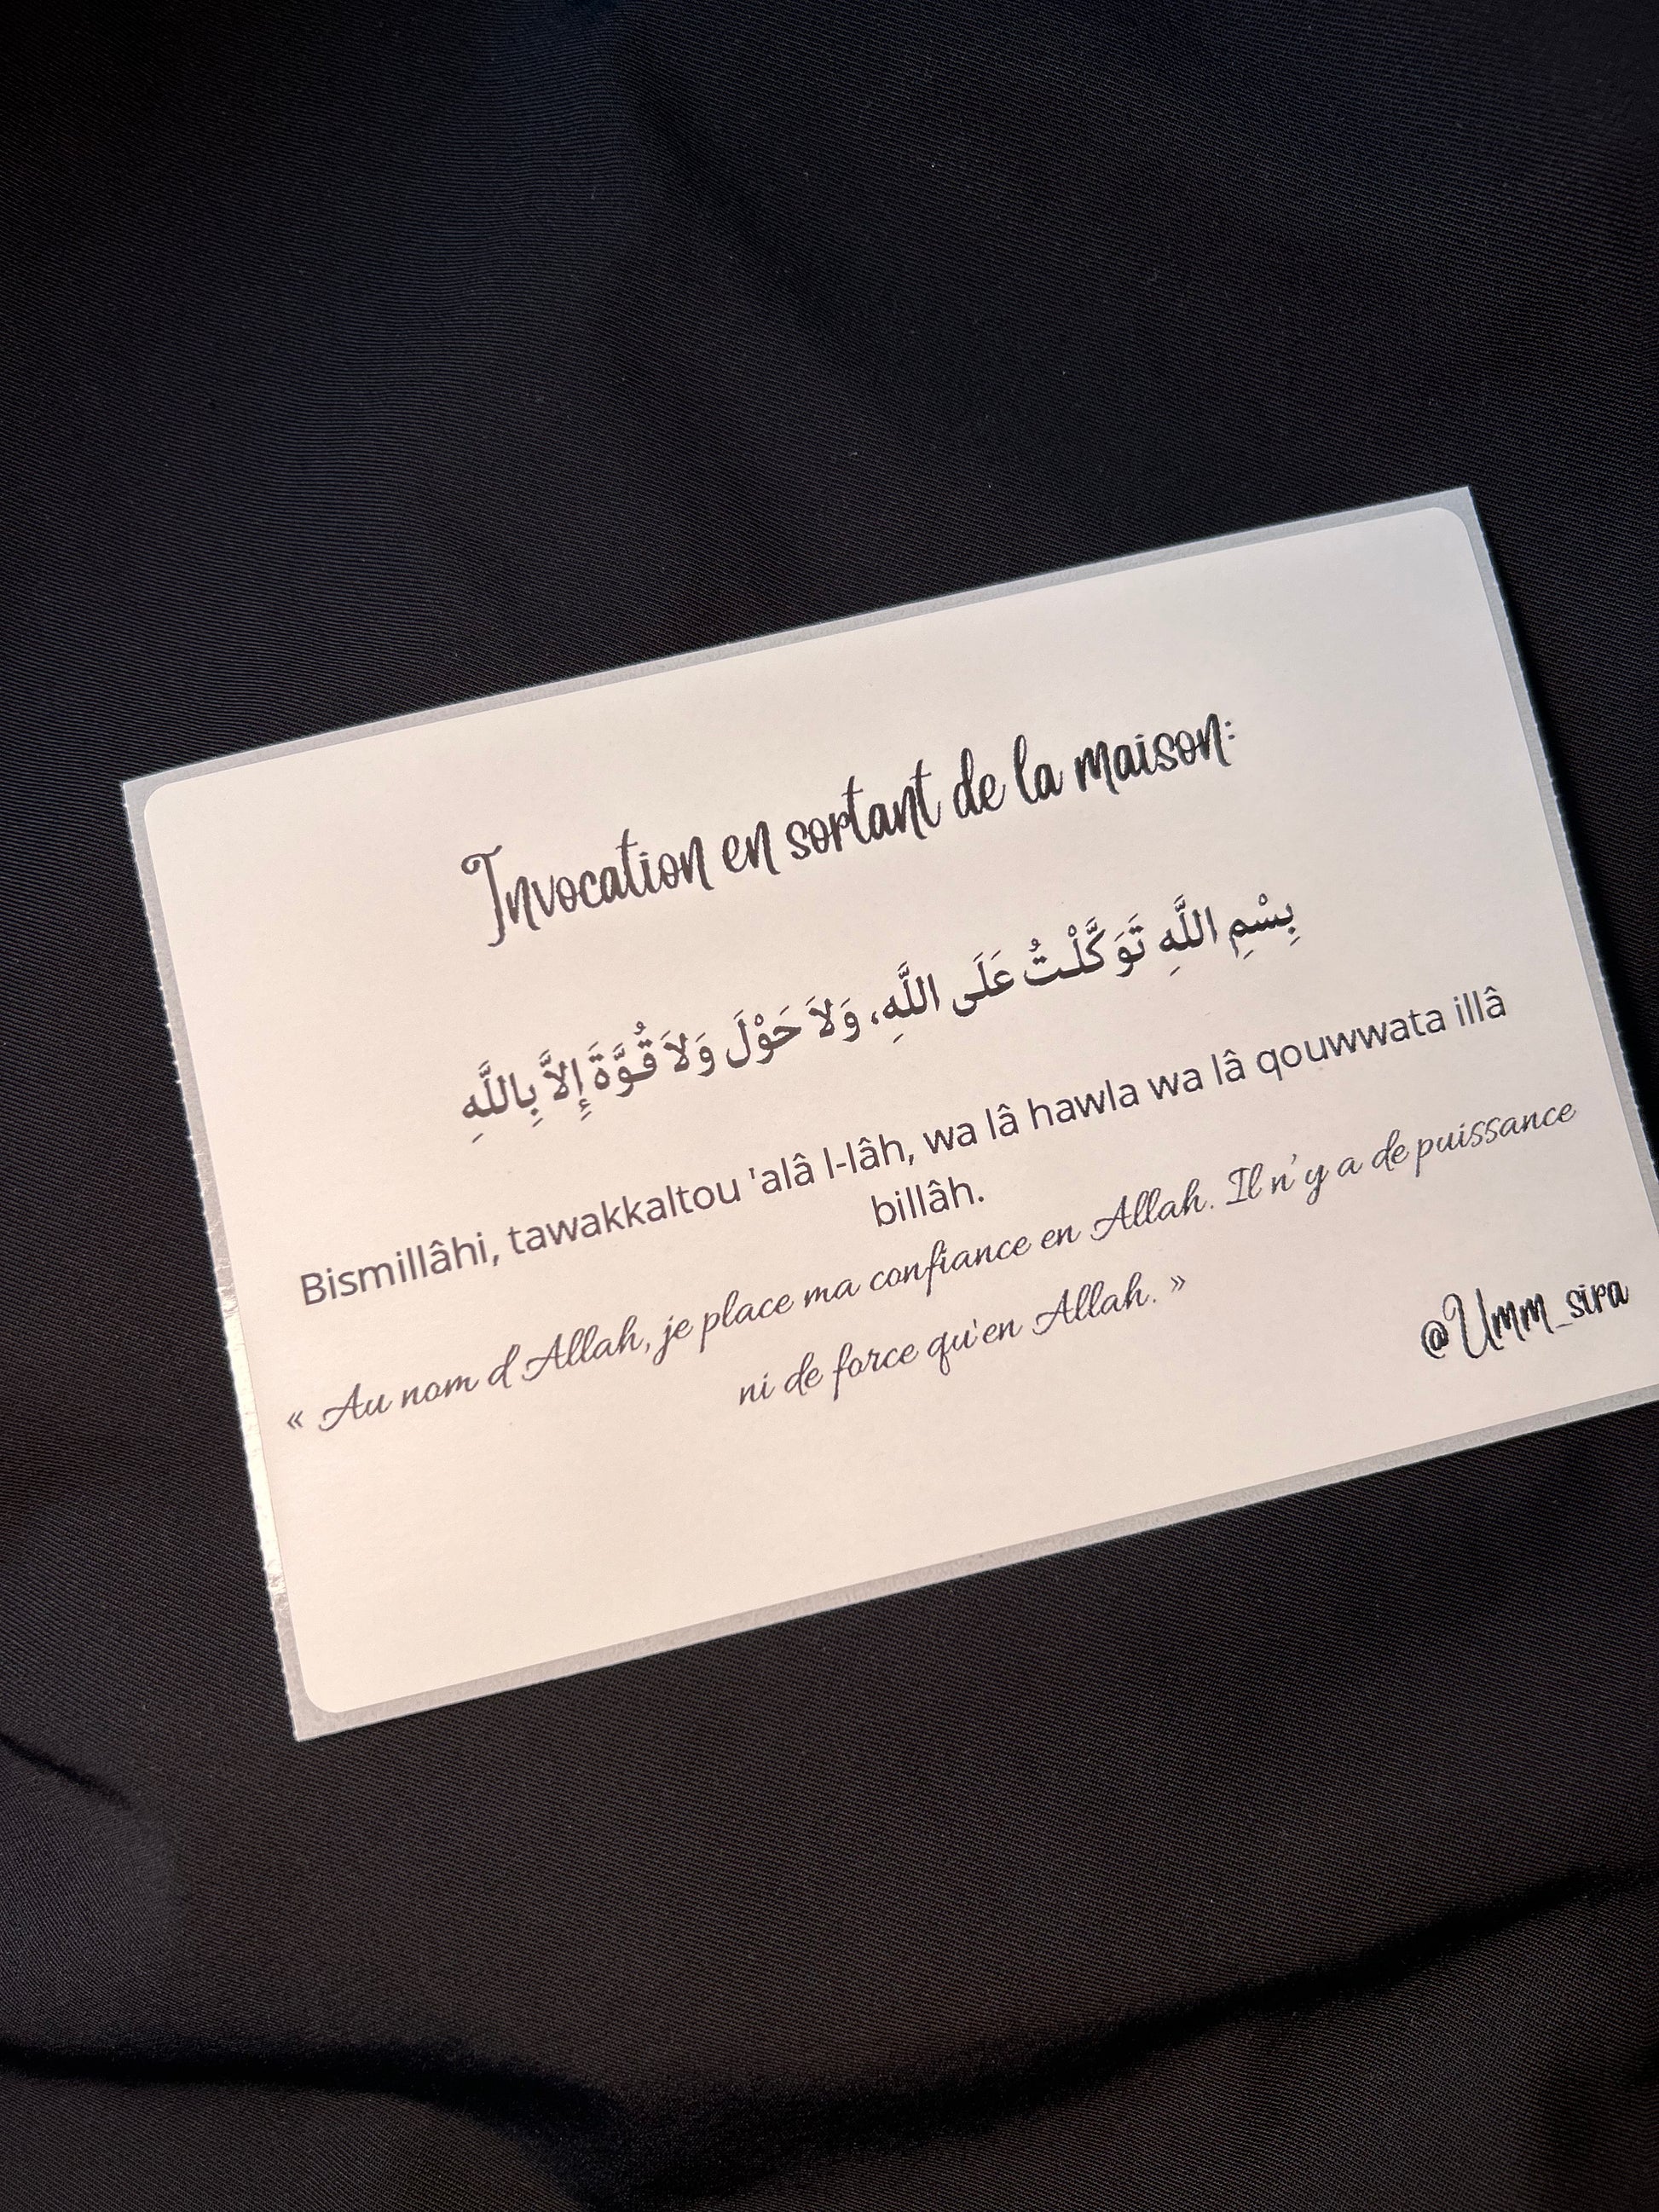 Invocation en sortant de la maison:
بِسْمِ اللَّهِ تَوَكَّلْتُ عَلَى اللَّهِ، وَلاَ حَوْلَ وَلاَ قُوَّةَ إِلاَّ بِاللَّهِ
Bismillâhi, tawakkaltou 'alâ l-lâh, wa lâ hawla wa lâ qouwwata illâ
billâh.
« Au nom d'Allah, je place ma confiance en Allah. Il n'y a de puissance
ni de force qu'en Allah. »
@Umm_sira